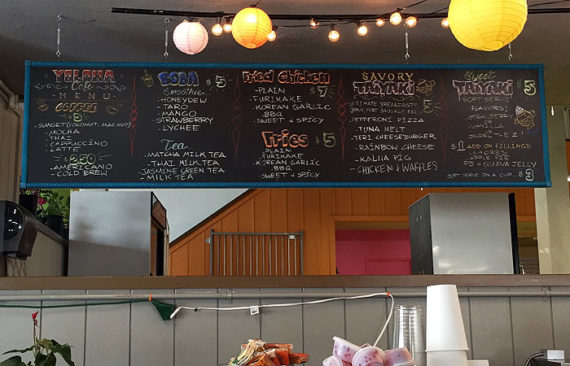 Cafe
MENU
COFFEE $5
-SUNSET (COCONUT, MAC NUT)
-MOCHA
-THAI
-CAPPUCCINO
-LATTE
-AMERICANO
-COLD BREW
BOBA $5
Smoothie
-HONEYDEW
-TARO
-MANGO
-STRAWBERRY
-LYCHEE
Tea
-MATCHA MILK TEA
-THAI MILK TEA
-JASMINE GREEN TEA
-MILK TEA
Fried Chicken
-PLAIN
-FURIKAKE
-KOREAN GARLIC
-BBQ
-SWEET + SPICY
Fries
-PLAIN
-FURIKAKE
-KOREAN GARLIC
-BBQ
-SWEET + SPICY
SAVORY
TAIYAKI
-ULTIMATE BREAKFAST
-PEPPERONI PIZZA
-TUNA MELT
-TERI CHEESEBURGER
-RAINBOW CHEESE
-KALUA PIG
-CHICKEN & WAFFLES
Sweet
TAIYAKI $5
SOFT SERVE
FLAVORS:
$1 ADD ON FILLINGS
-APPLE PIE
-PB + GUAVA JELLY
SOFT SERVE IN A CUP $3